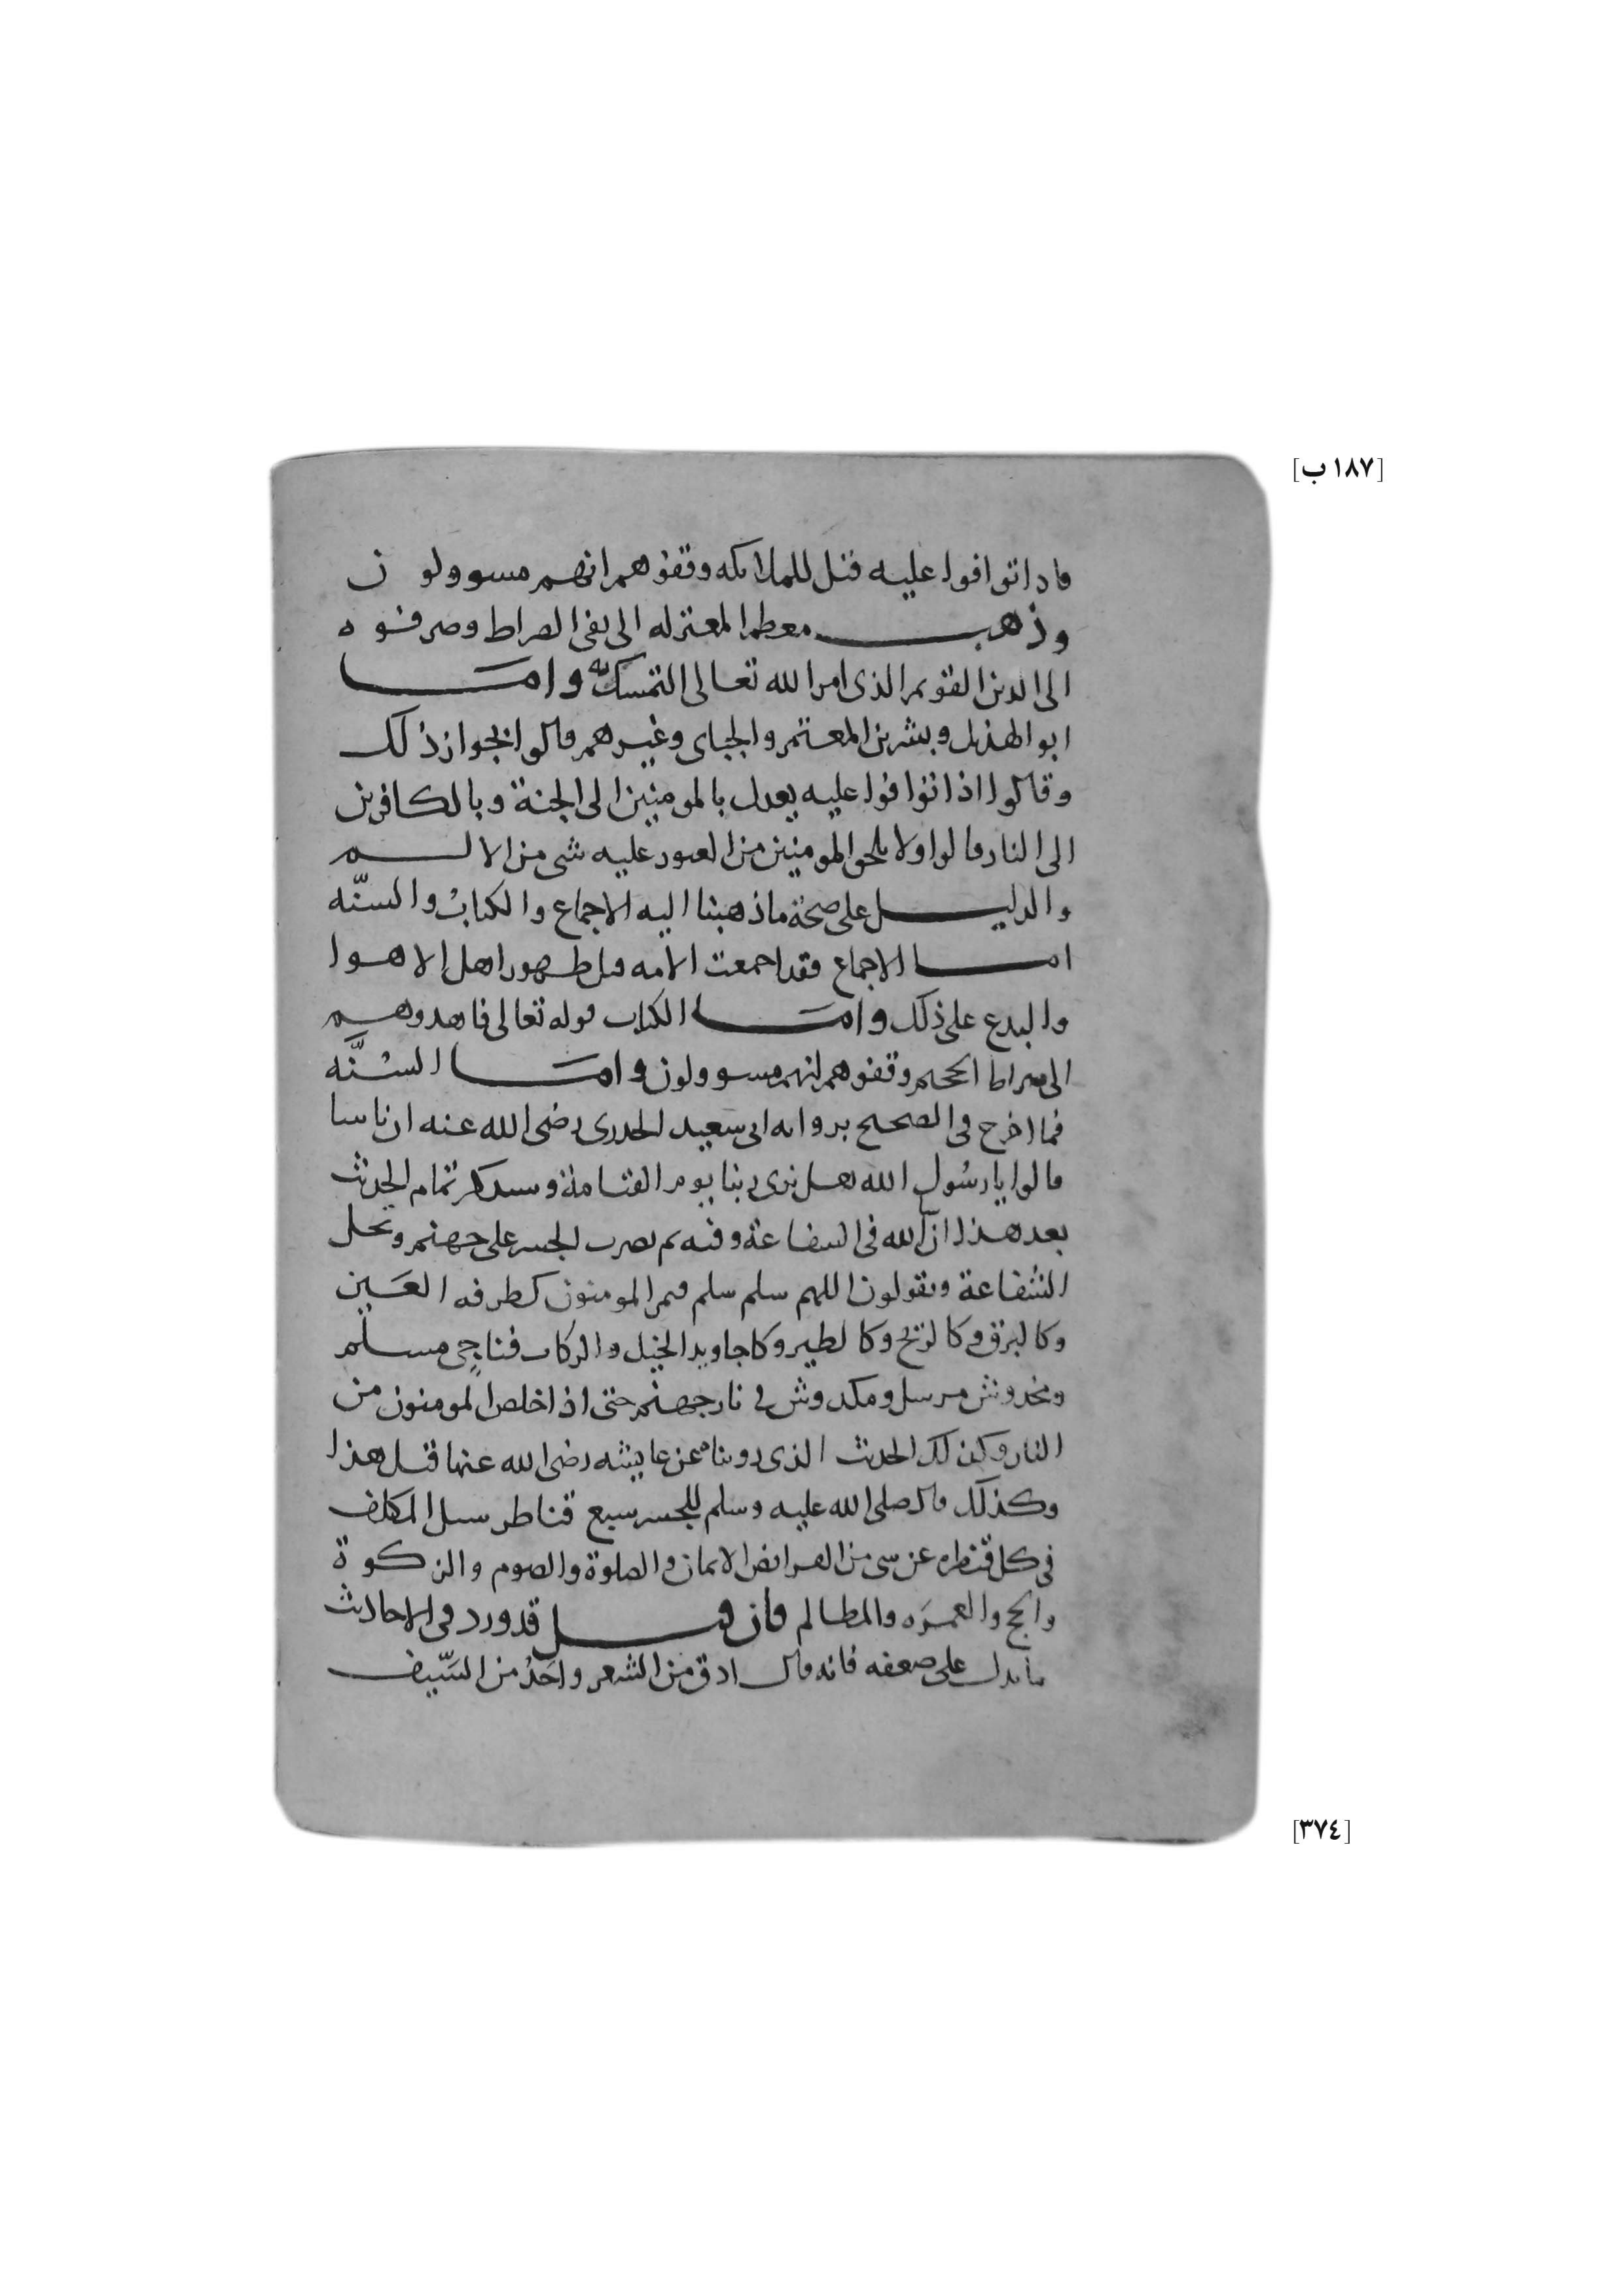 [١٨٧ ب]
فاذا توافوا عليه قيل للملائكه وقفوهم انهم مسوولون
وذهب معظم المعتزله الى نفى الصراط وصرفوه
الى الدين القويم الذى امر الله تعالى التمسك به واما
ابو الهذيل وبشر بن المعتمر والجباى وغيرهم قالوا بجواز ذلك
وقالوا اذا توافوا عليه يعدل بالمومنين الى الجنة وبالكافرين
الى النار قالوا ولا يلحق المومنين من العبور عليه شى من الالم
والدليل على صحة ما ذهبنا اليه الاجماع والكتاب والسنه
اما الاجماع فقد اجمعت الامه قبل ظهور اهل الاهوا
والبدع على ذلك واما الكتاب قوله تعالى فاهدوهم
الى صراط الجحيم وقفوهم انهم مسوولون واما السنه
فما اخرج فى الصحيح بروايه ابى سعيد الخدرى رضى الله عنه ان ناسا
قالوا يا رسول الله هل نرى ربنا يوم القيامة وسنذكر تمام الحديث
بعد هذا ان الله فى الشفاعة وفيه ثم يضرب الجسر على جهنم وتحل
الشفاعة ويقولون اللهم سلم سلم فيمر المومنون كطرفه العين
وكالبرق وكالريح وكالطير وكاجاويد الخيل والركاب فناجى مسلم
ومخدوش مرسل ومكدوش فى نار جهنم حتى اذا خلص المومنون من
النار وكذلك الحديث الذى رويناه عن عايشه رضى الله عنها قبل هذا
وكذلك قال صلى الله عليه وسلم للجسر سبع قناطر يسل المكلف
فى كل قنطره عن شى من الفرايض الايمان والصلوة والصوم والزكوة
والحج والعمره والمظالم فان قيل قد ورد فى الاحاديث
ما يدل على ضعفه فانه قال ادق من الشعر واحد من السيف
[٣٧٤]